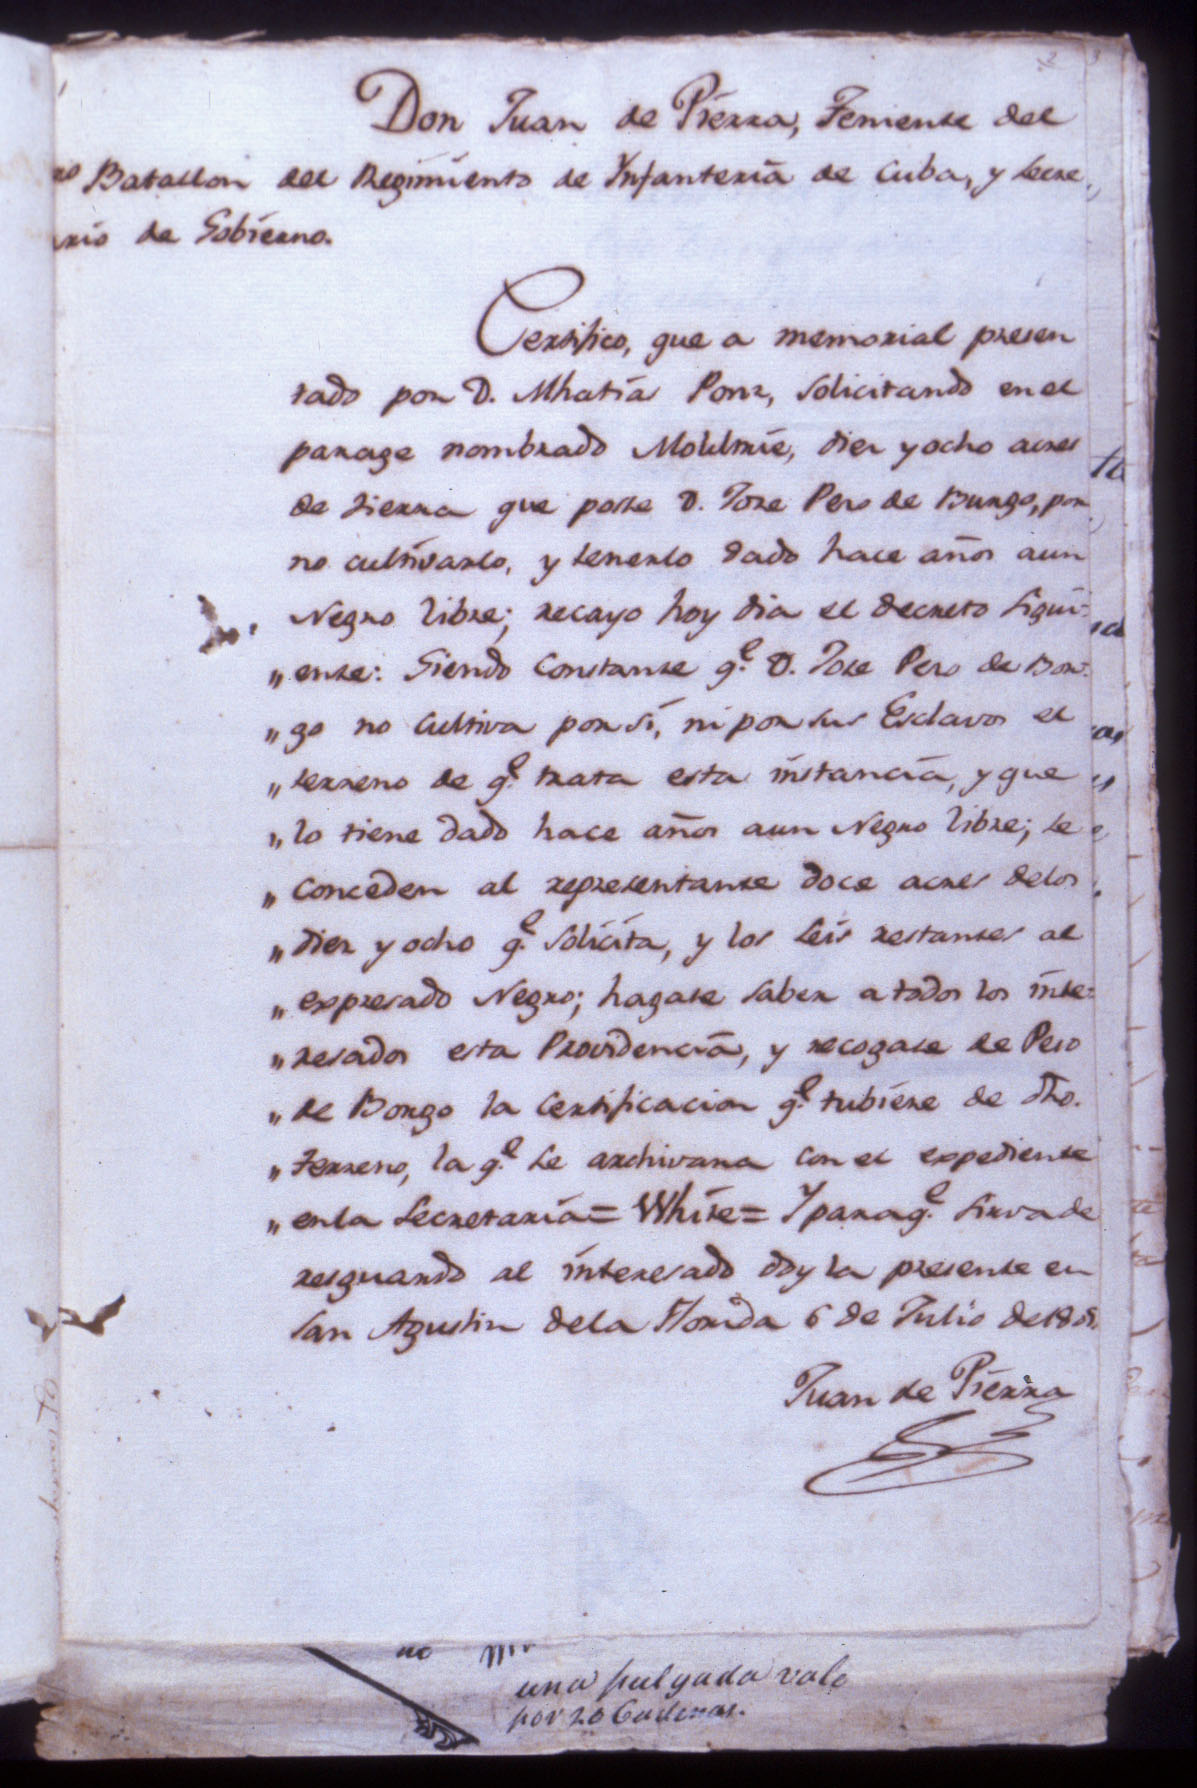 Don Juan de Pierra, Teniente del
ro Batallon del Regimiento de Ynfanteria de Cuba, y Secre,,
ario de Gobierno.
Certifico, que a memorial presen
tado por D. Mhatia Ponz, solicitando en el
parage nombrado Moldrie, diez y ocho acres
de tierra que posee D. Jose Pero de Burgo, por
no cultivarlo, y tenerlo dado hace años aun
Negro libre; recayo hoy dia el decreto sigui-
„ ente: Siendo constante q.e D. Jose Pero de Bor-
„ go no cultiva por sí, ni por sus Esclavos el
„ terreno de q.e trata esta instancia, y que
„ lo tiene dado hace años aun Negro libre; se
„ conceden al representante doce acres delos
„ diez y ocho q.e solicita, y los seis restantes al
„ expresado Negro; hagase saber a todos los inte-
„ resados esta Providencia, y recogase de Pero
„ de Borgo la certificacion q.e tubiere de dho.
„ terreno, la q.e se archivara con el expediente
„ enla Secretaria= White= Y para q.e sirva de
resguardo al interesado doy la presente en
San Agustin dela Florida 6 de Julio de
Juan de Pierra
una pulgada vale
por 20 Cadenas.